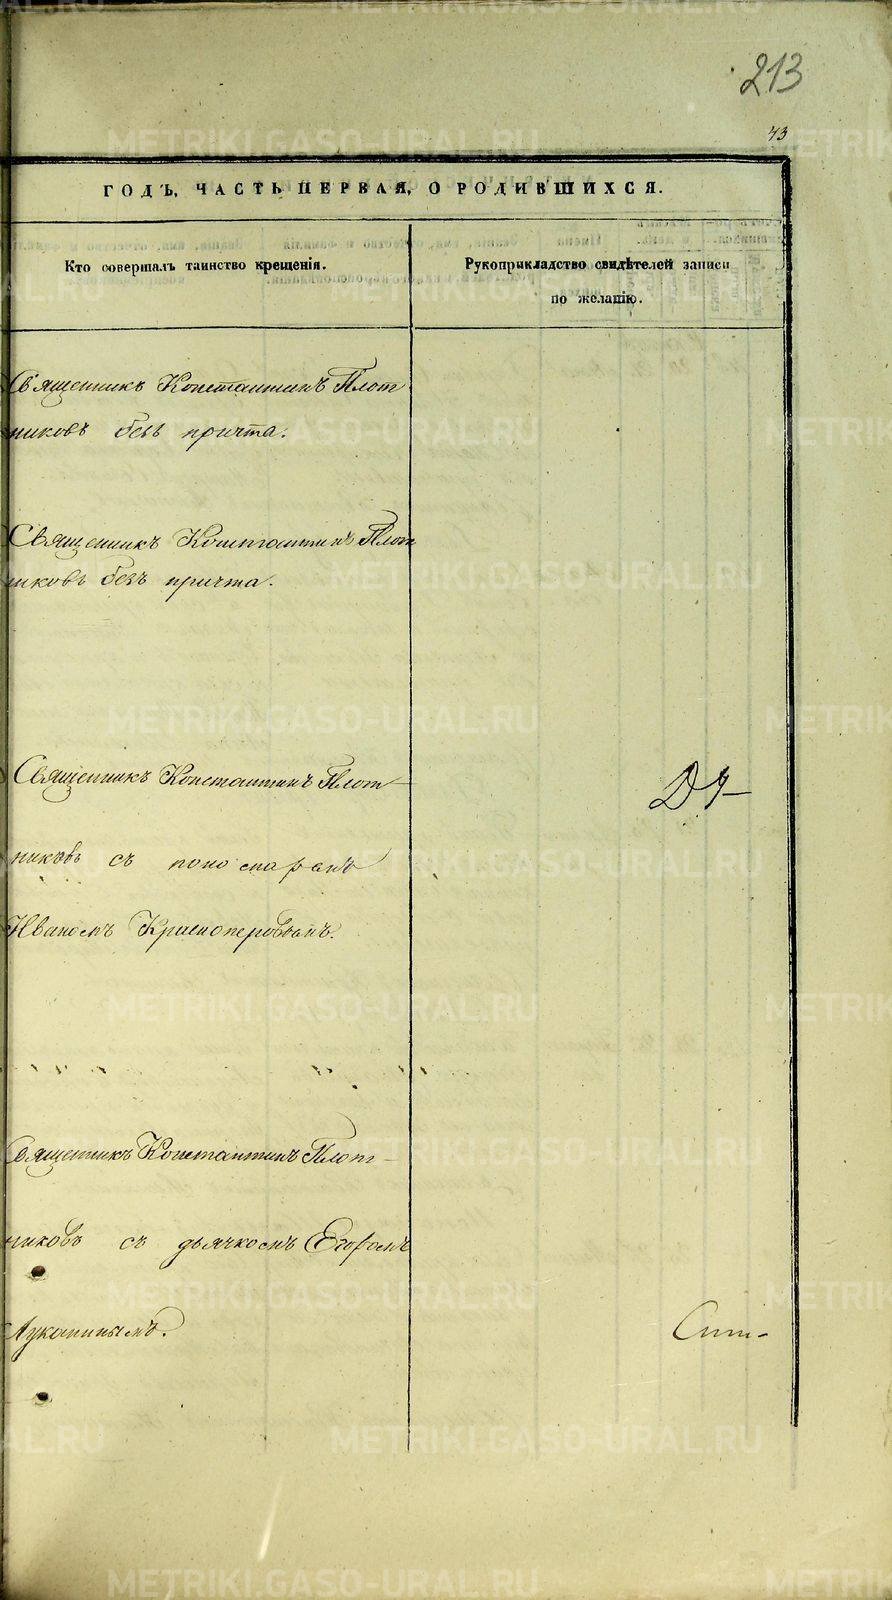 213
43
ГОДЪ, ЧАСТЬ ПЕРВАЯ, О РОДИВШИХСЯ.
Кто совершалъ таинство крещенія.
Рукоприкладство свидѣтелей записи
по желанію.
Священникъ Константинъ Плот
никовъ безъ причта.
Священникъ Константинъ Плот
никовъ безъ причта.
Священникъ Константинъ Плот-
никовъ съ пономаремъ
Иваномъ Красноперовымъ.
Священникъ Константинъ Плот-
никовъ съ дьячкомъ Егоромъ
Луканинымъ.
METRIKI.GASO-URAL.RU